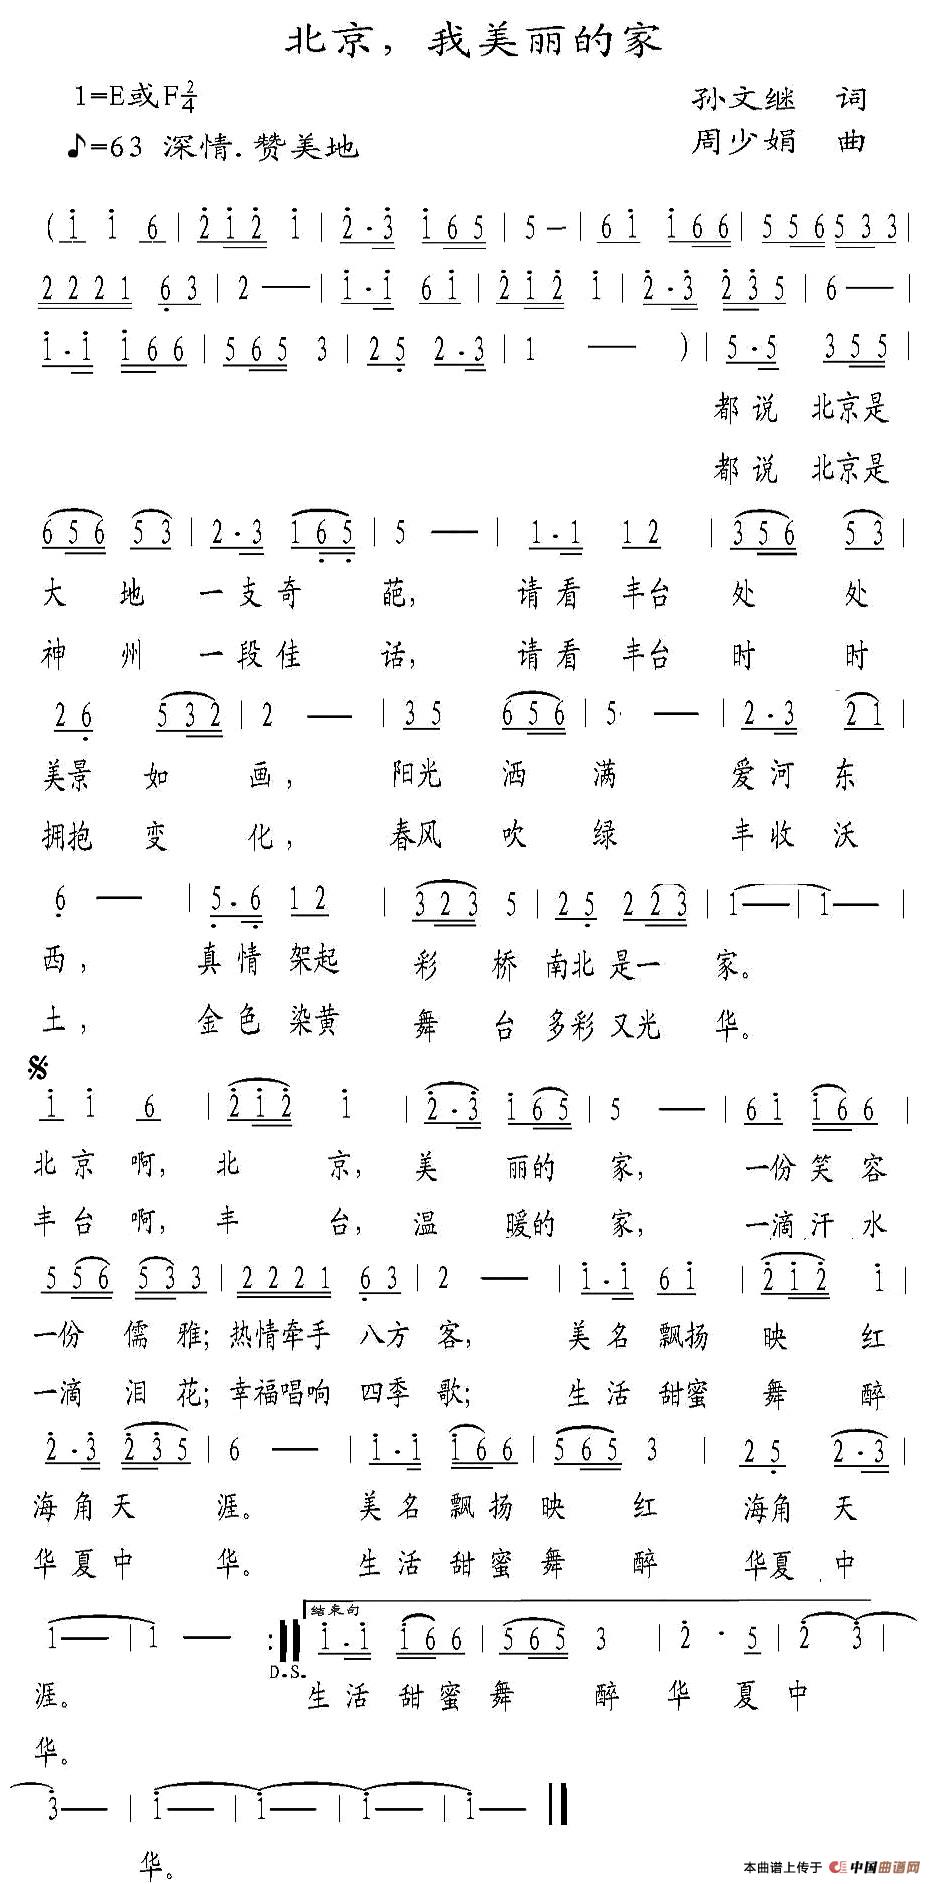 北京，我美丽的家
1=E或F2/4 孙文继 词
♪=63 深情.赞美地 周少娟 曲
( i i 6 | 2 i 2 i | 2 · 3 i 6 5 | 5 — | 6 i i 6 6 | 5 5 6 5 3 3 |
2 2 2 1 6 3 | 2 — | i · i 6 i | 2 i 2 i | 2 · 3 2 3 5 | 6 — |
i · i i 6 6 | 5 6 5 3 | 2 5 2 · 3 | 1 — ) | 5 · 5 3 5 5 |
都说 北京是
都说 北京是
6 5 6 5 3 | 2 · 3 1 6 5 | 5 — | 1 · 1 1 2 | 3 5 6 5 3 |
大 地 一支奇 葩， 请看丰台 处 处
神 州 一段佳 话， 请看丰台 时 时
2 6 5 3 2 | 2 — | 3 5 6 5 6 | 5 — | 2 · 3 2 1 |
美景 如 画， 阳光 洒 满 爱河东
拥抱 变 化， 春风 吹 绿 丰收沃
6 — | 5 · 6 1 2 | 3 2 3 5 | 2 5 2 2 3 | 1 — | 1 — |
西， 真情架起 彩 桥 南北是一 家。
土， 金色染黄 舞 台 多彩又光 华。
i i 6 | 2 i 2 i | 2 · 3 i 6 5 | 5 — | 6 i i 6 6 |
北京啊， 北 京， 美 丽的 家， 一份笑容
丰台啊， 丰 台， 温 暖的 家， 一滴汗水
5 5 6 5 3 3 | 2 2 2 1 6 3 | 2 — | i · i 6 i | 2 i 2 i |
一份 儒 雅；热情牵手 八方 客， 美名飘扬 映 红
一滴 泪 花；幸福唱响 四季 歌； 生活甜蜜 舞 醉
2 · 3 2 3 5 | 6 — | i · i i 6 6 | 5 6 5 3 | 2 5 2 · 3 |
海角天 涯。 美名飘扬映 红 海角天
华夏中 华。 生活甜蜜舞 醉 华夏中
结束句
1 — | 1 — :‖ i · i i 6 6 | 5 6 5 3 | 2 · 5 | 2 3 |
D.S.
涯。 生活甜蜜舞 醉 华 夏中
华。
3 — | i — | i — | i — | i — ‖
华。
本曲谱上传于 中国曲谱网